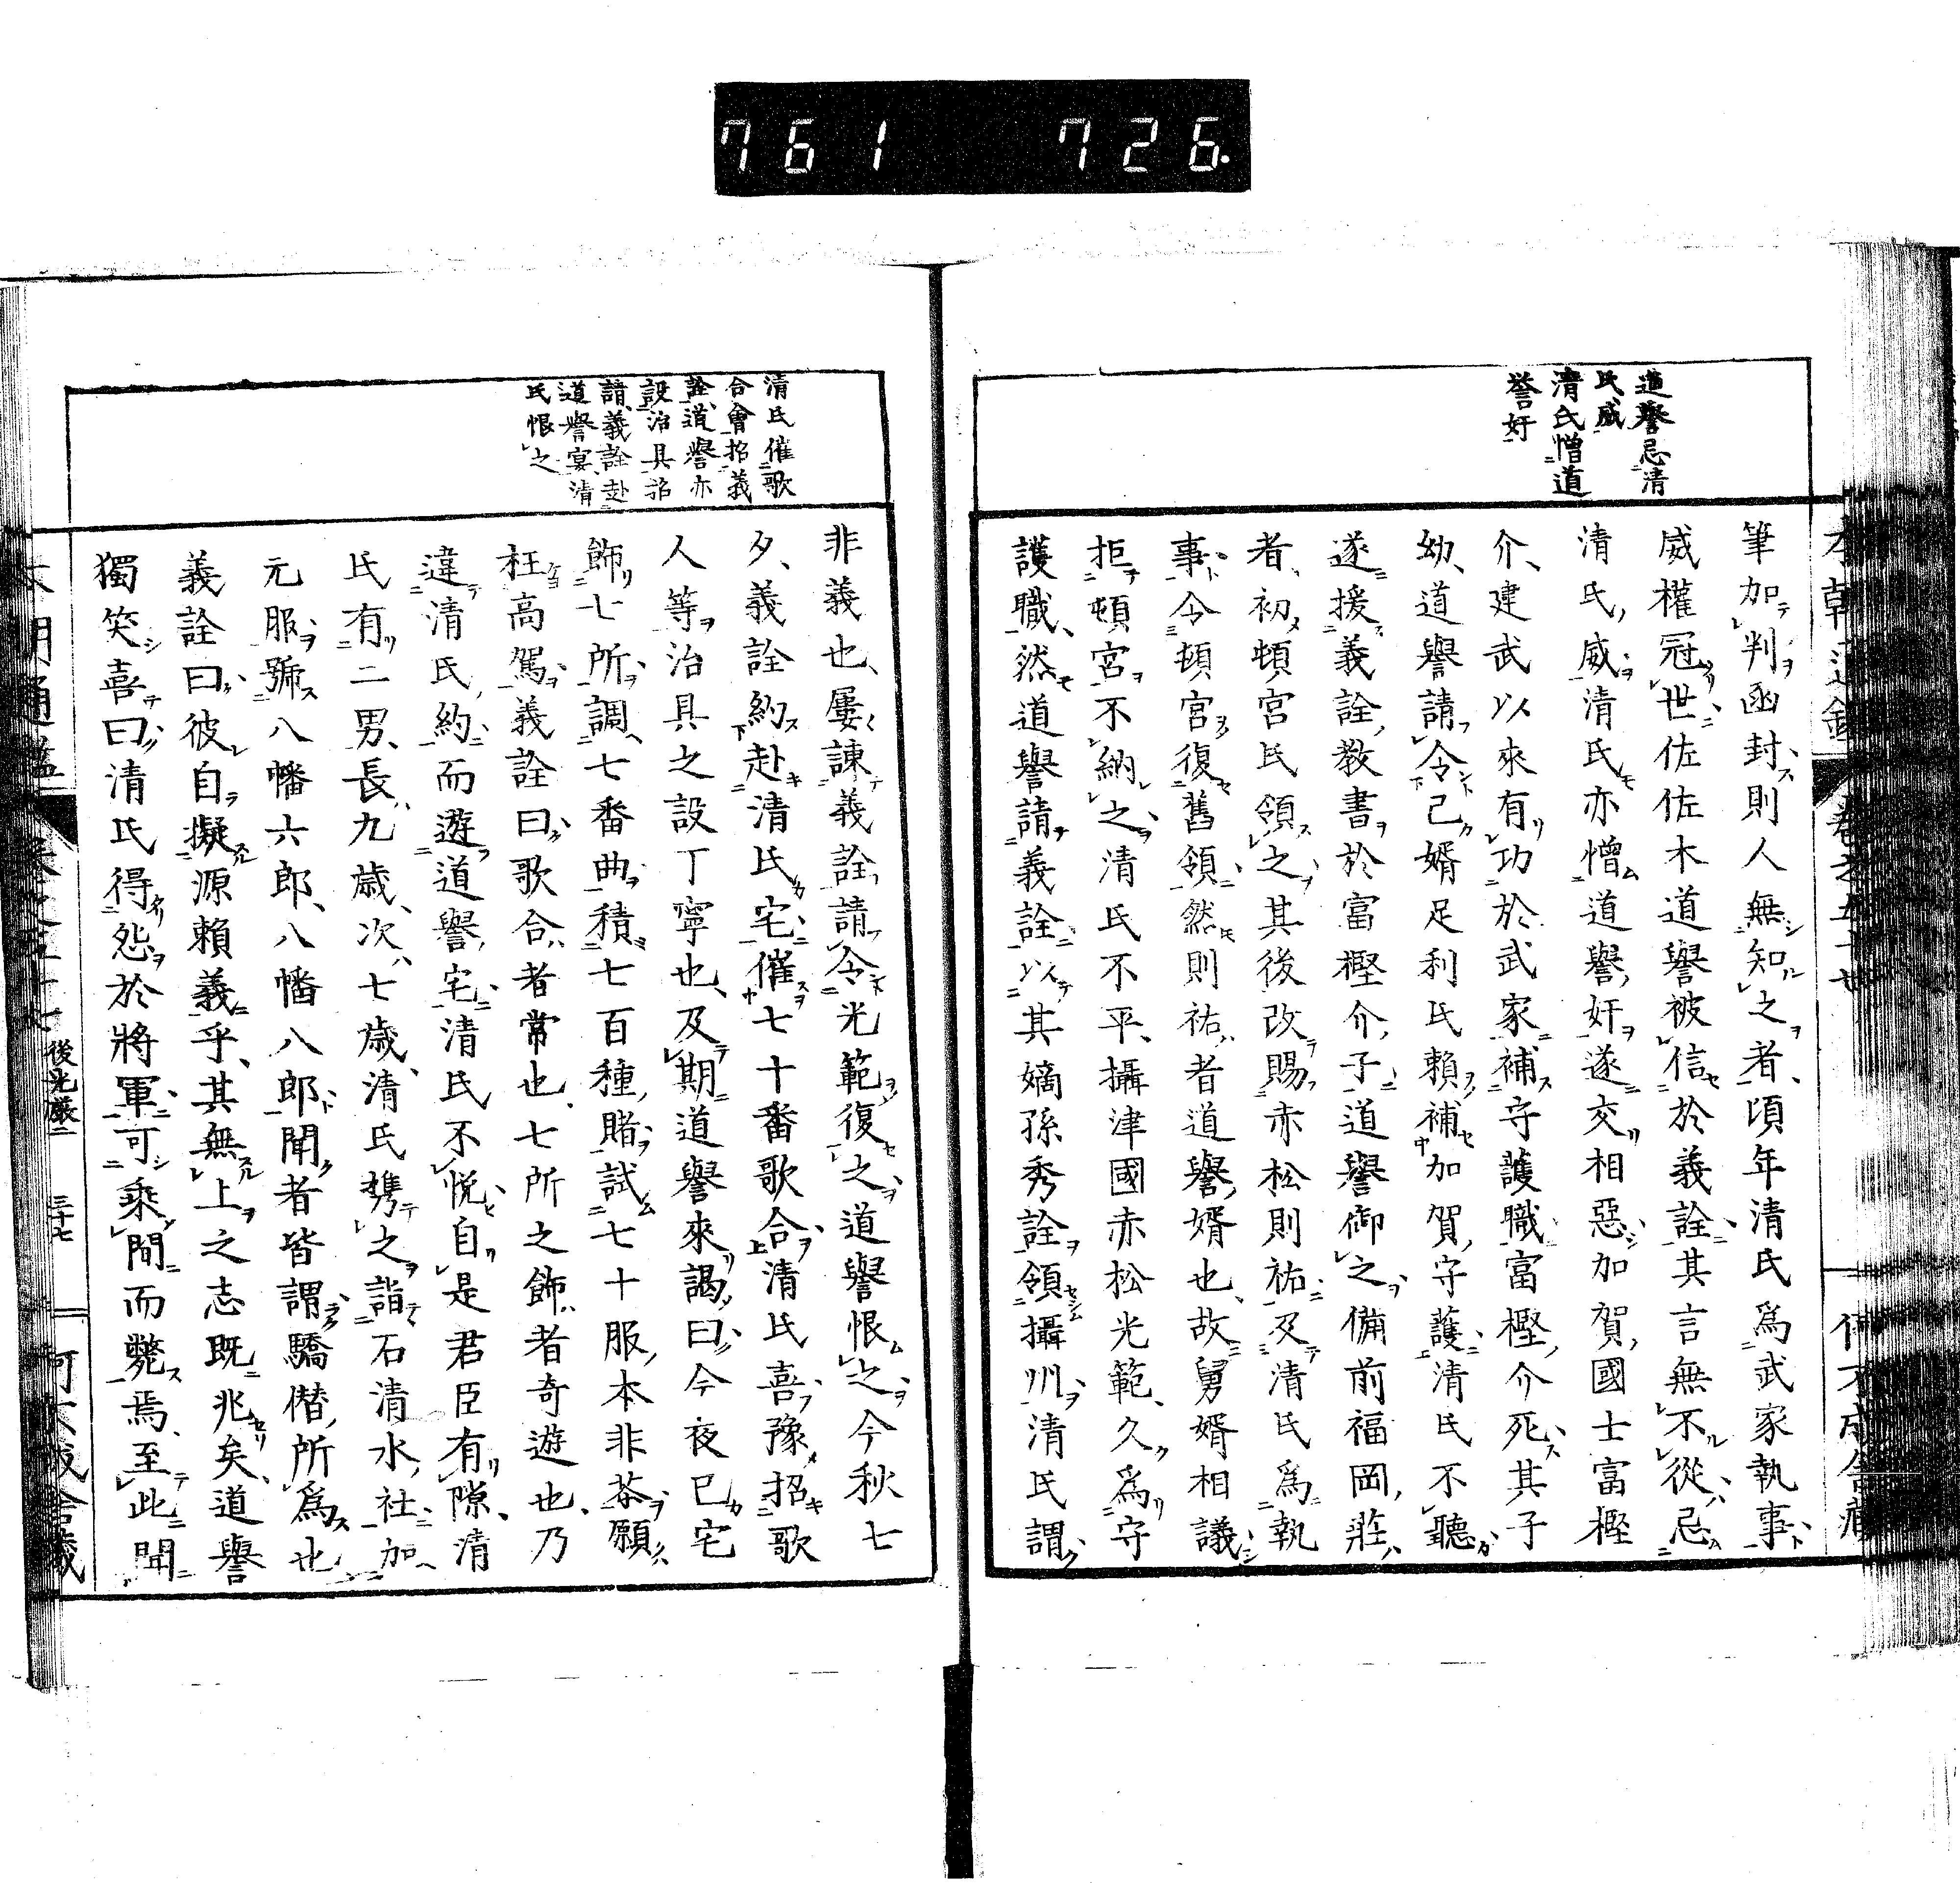 761 726.
道譽忌清
氏威
清氏憎道
誉奸
筆加判函封則人無知之者頃年清氏爲武家執事
威權冠世佐佐木道譽被信於義詮其言無不從忌
清氏威清氏亦憎道譽奸遂交相惡加賀國士富樫
介建武以來有功於武家補守護職富樫介死其子
幼道譽請令己婿足利氏賴補加賀守護清氏不聽
遂援義詮教書於富樫介子道譽銜之備前福岡莊
者初頓宮氏領之其後改賜赤松則祐及清氏爲執
事令頓宮復舊領然則祐者道譽婿也故舅婿相議
拒頓宮不納之清氏不平攝津國赤松光範久爲守
護職然道譽請義詮以其嫡孫秀詮領攝州清氏謂
清氏催歌
合會招義
詮道譽亦
設治具招
請義詮赴
道譽宴清
氏恨之
非義也屢諫義詮請令光範復之道譽恨之今秋七
夕義詮約赴清氏宅催七十番歌合清氏喜豫招歌
人等治具之設丁寧也及期道譽來謁曰今夜已宅
飾七所調七番曲積七百種賭試七十服本非茶願
枉高駕義詮曰歌合者常也七所之飾者奇遊也乃
違清氏約而遊道譽宅清氏不悅自是君臣有隙清
氏有二男長九歲次七歲清氏携之詣石清水社加
元服號八幡六郎八幡八郎聞者皆謂驕僣所爲也
義詮曰彼自擬源賴義乎其無上之志既兆矣道譽
獨笑喜曰清氏得怨於將軍可乘間而斃焉至此聞
後光嚴二
三十七